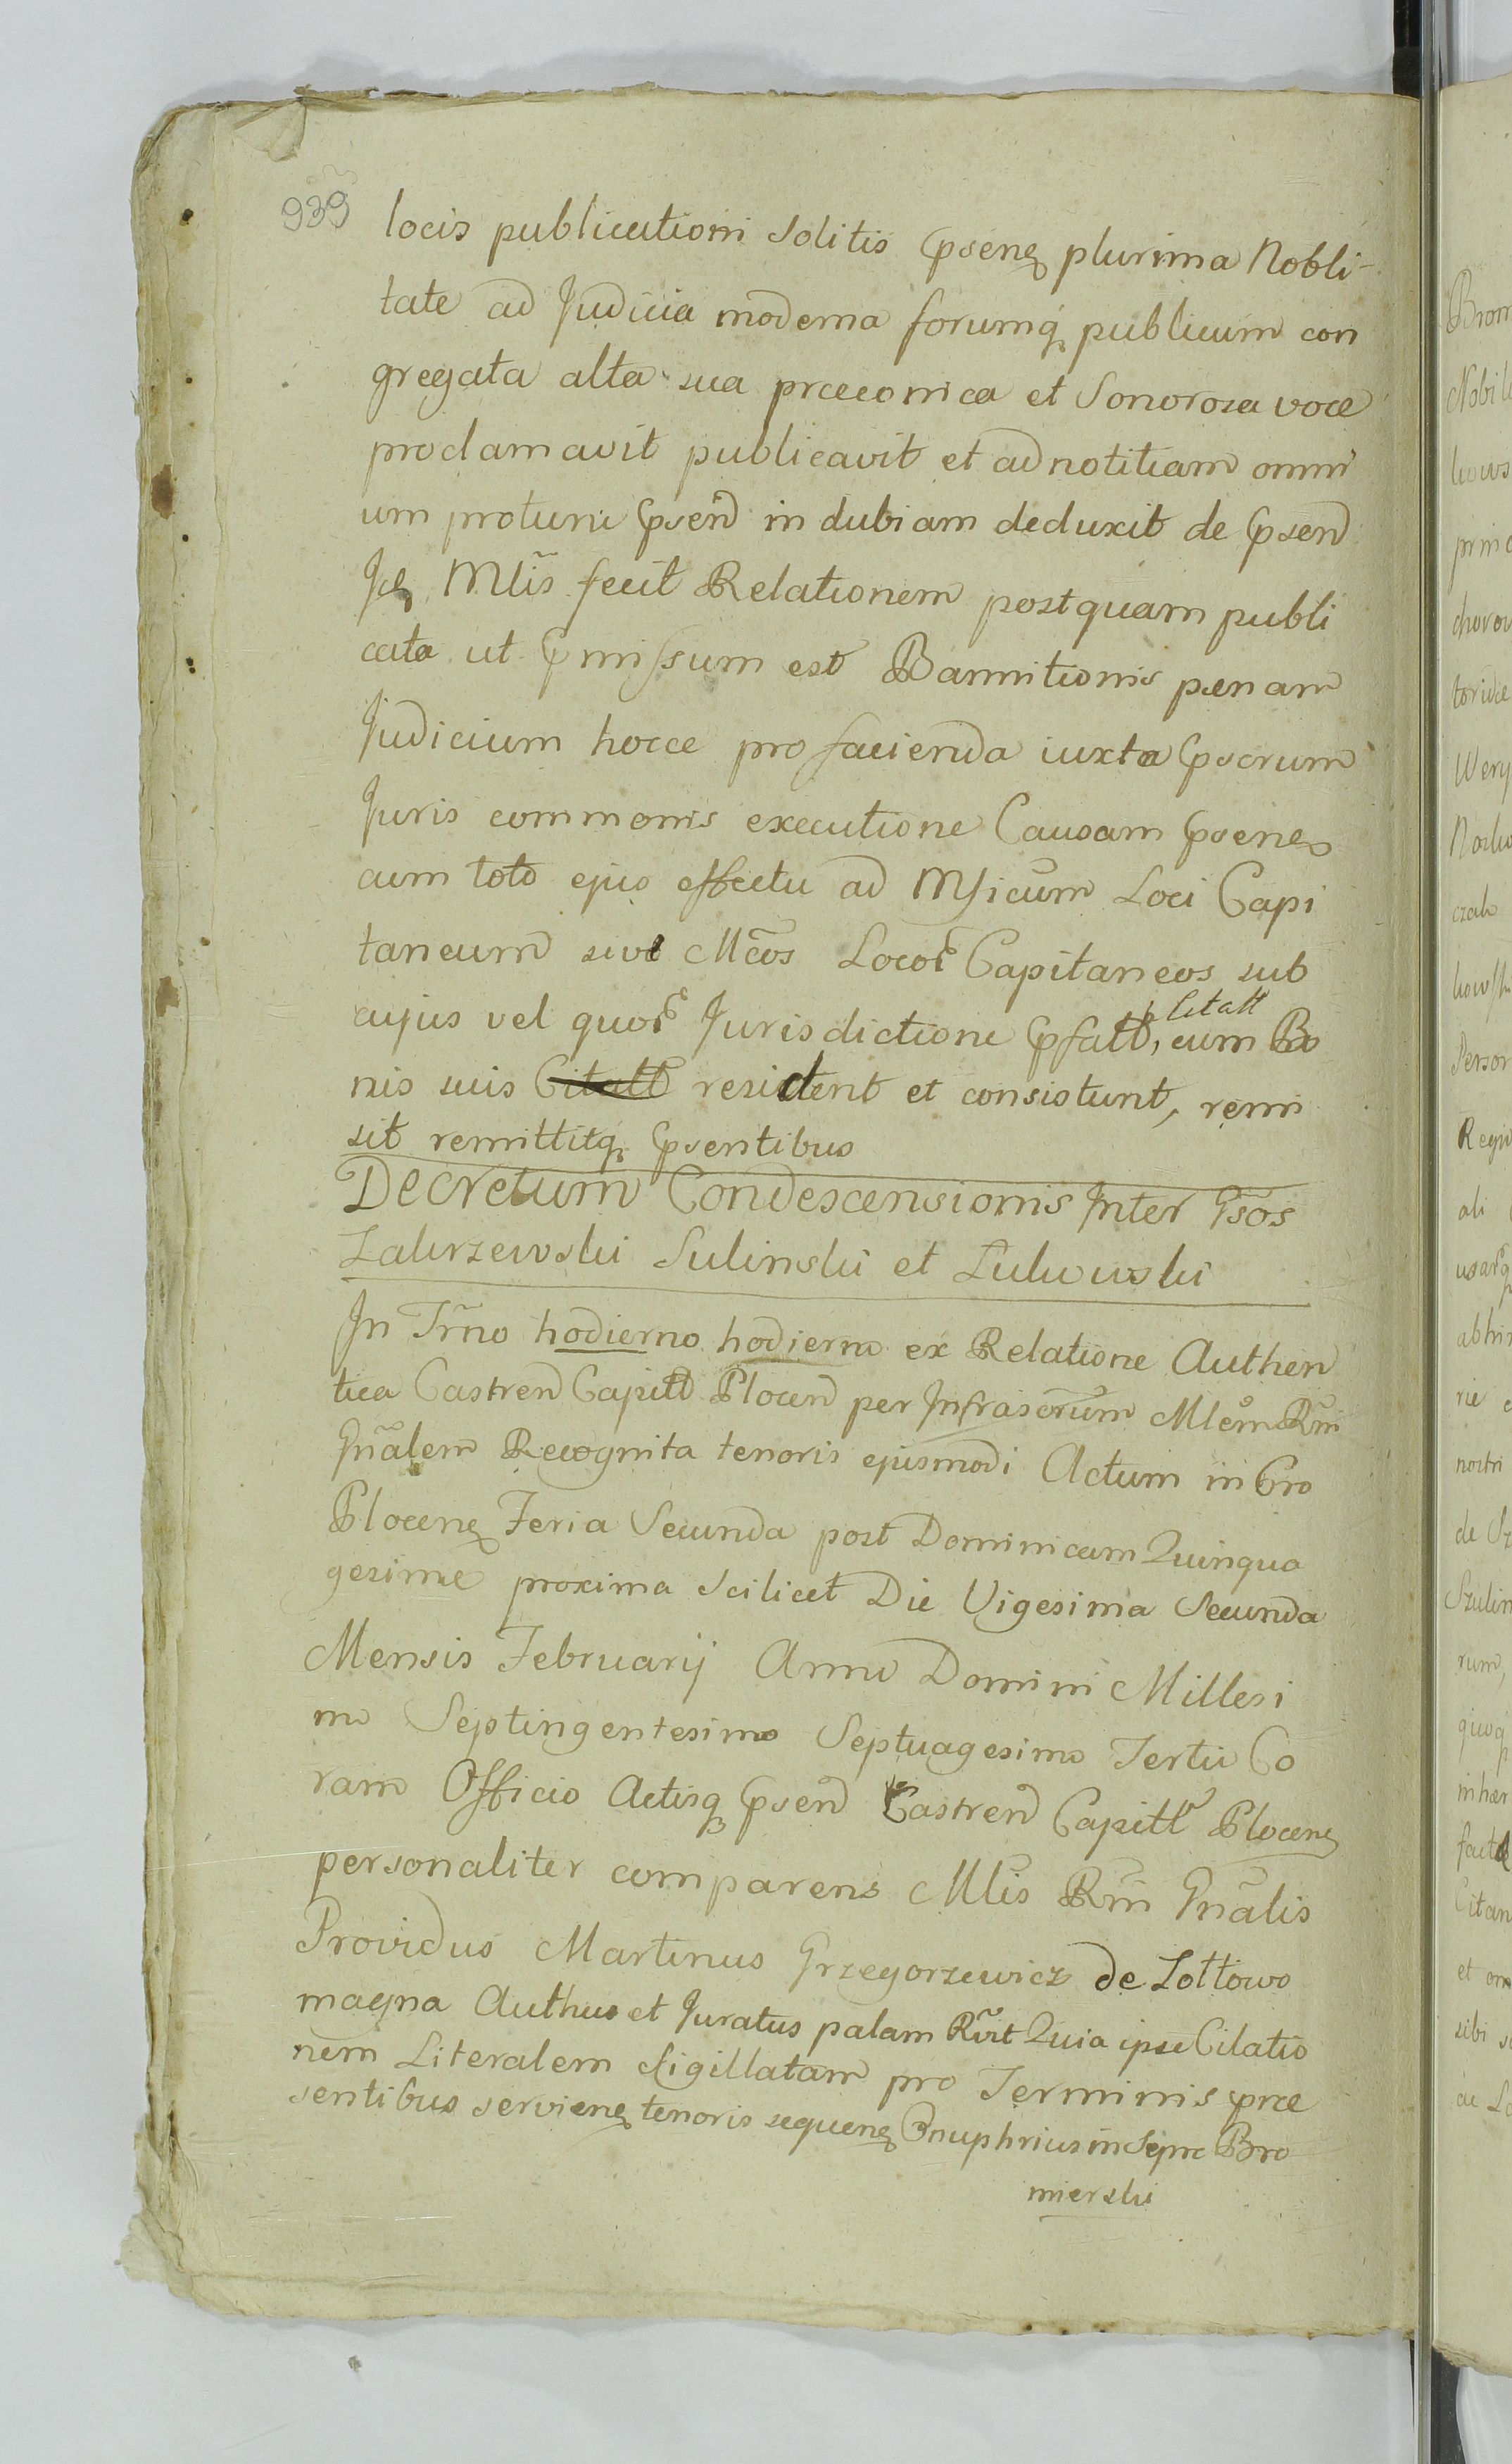 939
locis publicationi solitis Psenq plurima Nobli-
tate ad Judicia moderna forumq publicum con
gregata alta sua præconica et Sonorosa voce
proclamavit publicavit et ad notitiam omni
um protunc Psend in dubiam deduxit de Psend
Mlis fecit Relationem postquam publi
cata ut Pmissum est Bannitionis pænam
Judicium hocce pro facienda iuxta Pscrum
Juris communis executione Causam Psenq
cum toto ejus effectu ad Mficum Loci Capi
taneum sive Mcos Locor Capitaneos sub
cujus vel quor Jurisdictione Pfatt, Citatt cum Bo
nis suis Citatt resident et consistunt, remi
sit remittitq Psentibus
Decretum Condescensionis Inter Gsos
Zakrzewski Sulinski et Lukowski
In Trno hodierno hodierno ex Relatione Authen
tica Castren Capitt Plocen per Infrascrum Mlem Rni
Gnalem Recognita tenoris ejusmodi Actum in Cro
Plocenq Feria Secunda post Dominicam Quinqua
gesimæ proxima scilicet Die Vigesima Secunda
Mensis Februarij Anno Domini Millesi
mo Septingentesimo Septuagesimo Tertio Co
ram Officio Actisq Psend Castren Capitt Plocenq
personaliter comparens Mlis Rni Gnalis
Providus Martinus Grzegorzewicz de Zottowo
magna Authus et Juratus palam Rvit Quia ipse Citatio
nem Literalem Sigillatam pro Terminis præ
sentibus servienq tenoris sequenq Onuphrius in Sepre Bro
mierski